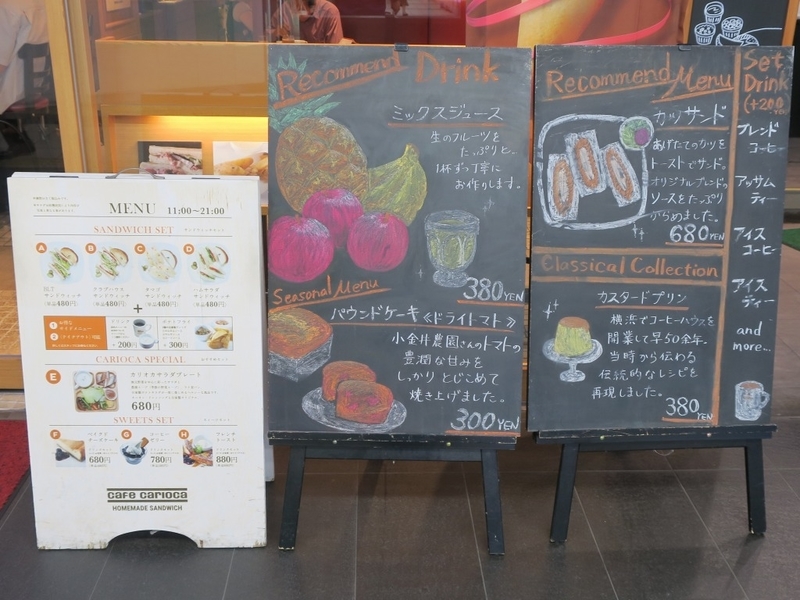 MENU 11:00~21:00
SANDWICH SET
A
B
C
D
サンドウィッチ
クラブハウス
サンドウィッチ
タマゴ
サンドウィッチ
ハムサラダ
サンドウィッチ
480円
480円
480円
480円
+
1
2
+ 200円
+ 300円
CARIOCA SPECIAL
E
カリオカサラダプレート
680円
SWEETS SET
F
G
H
680円
780円
880円
CAFE CARIOCA
HOMEMADE SANDWICH
Recommend Drink
ミックスジュース
生のフルーツを
たっぷりと。
1杯ずつ丁寧に
お作りします。
380YEN
Seasonal Menu
パウンドケーキ《ドライトマト》
小金井農園さんのトマトの
豊潤な甘みを
しっかりとじこめて
焼き上げました。
300YEN
Recommend Menu
カツサンド
あげたてのカツを
トーストでサンド。
オリジナルブレンドの
ソースをたっぷり
からめました。
680YEN
Classical Collection
カスタードプリン
横浜でコーヒーハウスを
開業して早50余年。
当時から伝わる
伝統的なレシピを
再現しました。
380YEN
Set
Drink
(+200
ブレンド
コーヒー
アッサム
ティー
アイス
コーヒー
アイス
ティー
and
more...